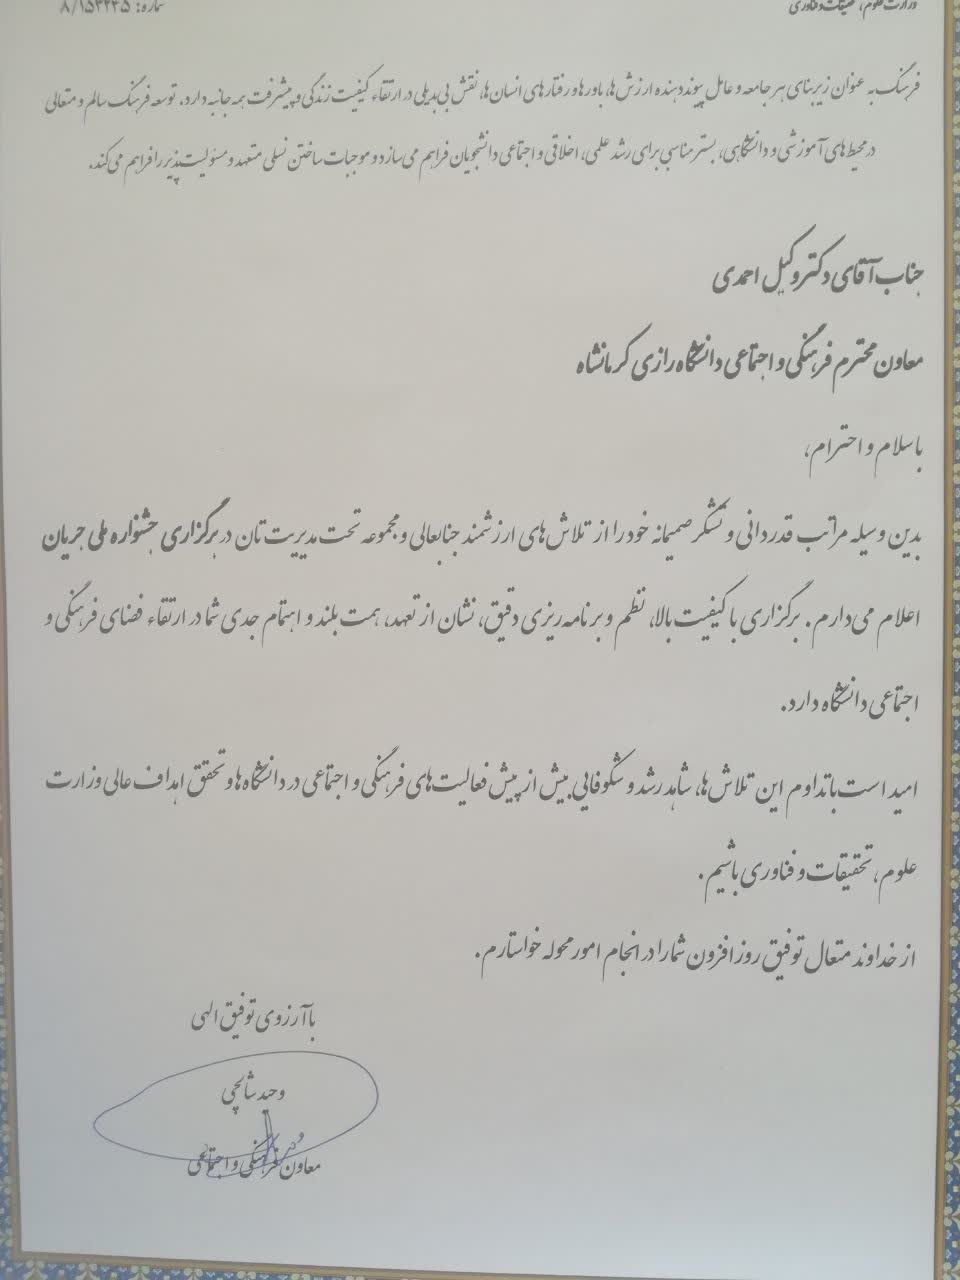 وزارت علوم، تحقیقات و فناوری
شماره: ۸/۱۵۳۲۳۵
فرهنگ به عنوان زیربنای هر جامعه و عامل پیونددهنده ارزش‌ها، باورها و رفتارهای انسان‌ها، نقش بی‌بدیلی در ارتقاء کیفیت زندگی و پیشرفت همه جانبه دارد. توسعه فرهنگ سالم و متعالی
در محیط‌های آموزشی و دانشگاهی، بستر مناسبی برای رشد علمی، اخلاقی و اجتماعی دانشجویان فراهم می‌سازد و موجبات ساختن نسلی متعهد و مسئولیت‌پذیر را فراهم می‌کند.
جناب آقای دکتر وکیل احمدی
معاون محترم فرهنگی و اجتماعی دانشگاه رازی کرمانشاه
با سلام و احترام،
بدین وسیله مراتب قدردانی و تشکر صمیمانه خود را از تلاش‌های ارزشمند جنابعالی و مجموعه تحت مدیریت‌تان در برگزاری جشنواره ملی جریان
اعلام می‌دارم. برگزاری با کیفیت بالا، نظم و برنامه‌ریزی دقیق، نشان از تعهد، همت بلند و اهتمام جدی شما در ارتقاء فضای فرهنگی و
اجتماعی دانشگاه دارد.
امید است با تداوم این تلاش‌ها، شاهد رشد و شکوفایی بیش از پیش فعالیت‌های فرهنگی و اجتماعی در دانشگاه‌ها و تحقق اهداف عالی وزارت
علوم، تحقیقات و فناوری باشیم.
از خداوند متعال توفیق روزافزون شما را در انجام امور محوله خواستارم.
با آرزوی توفیق الهی
وحید شالچی
معاون فرهنگی و اجتماعی